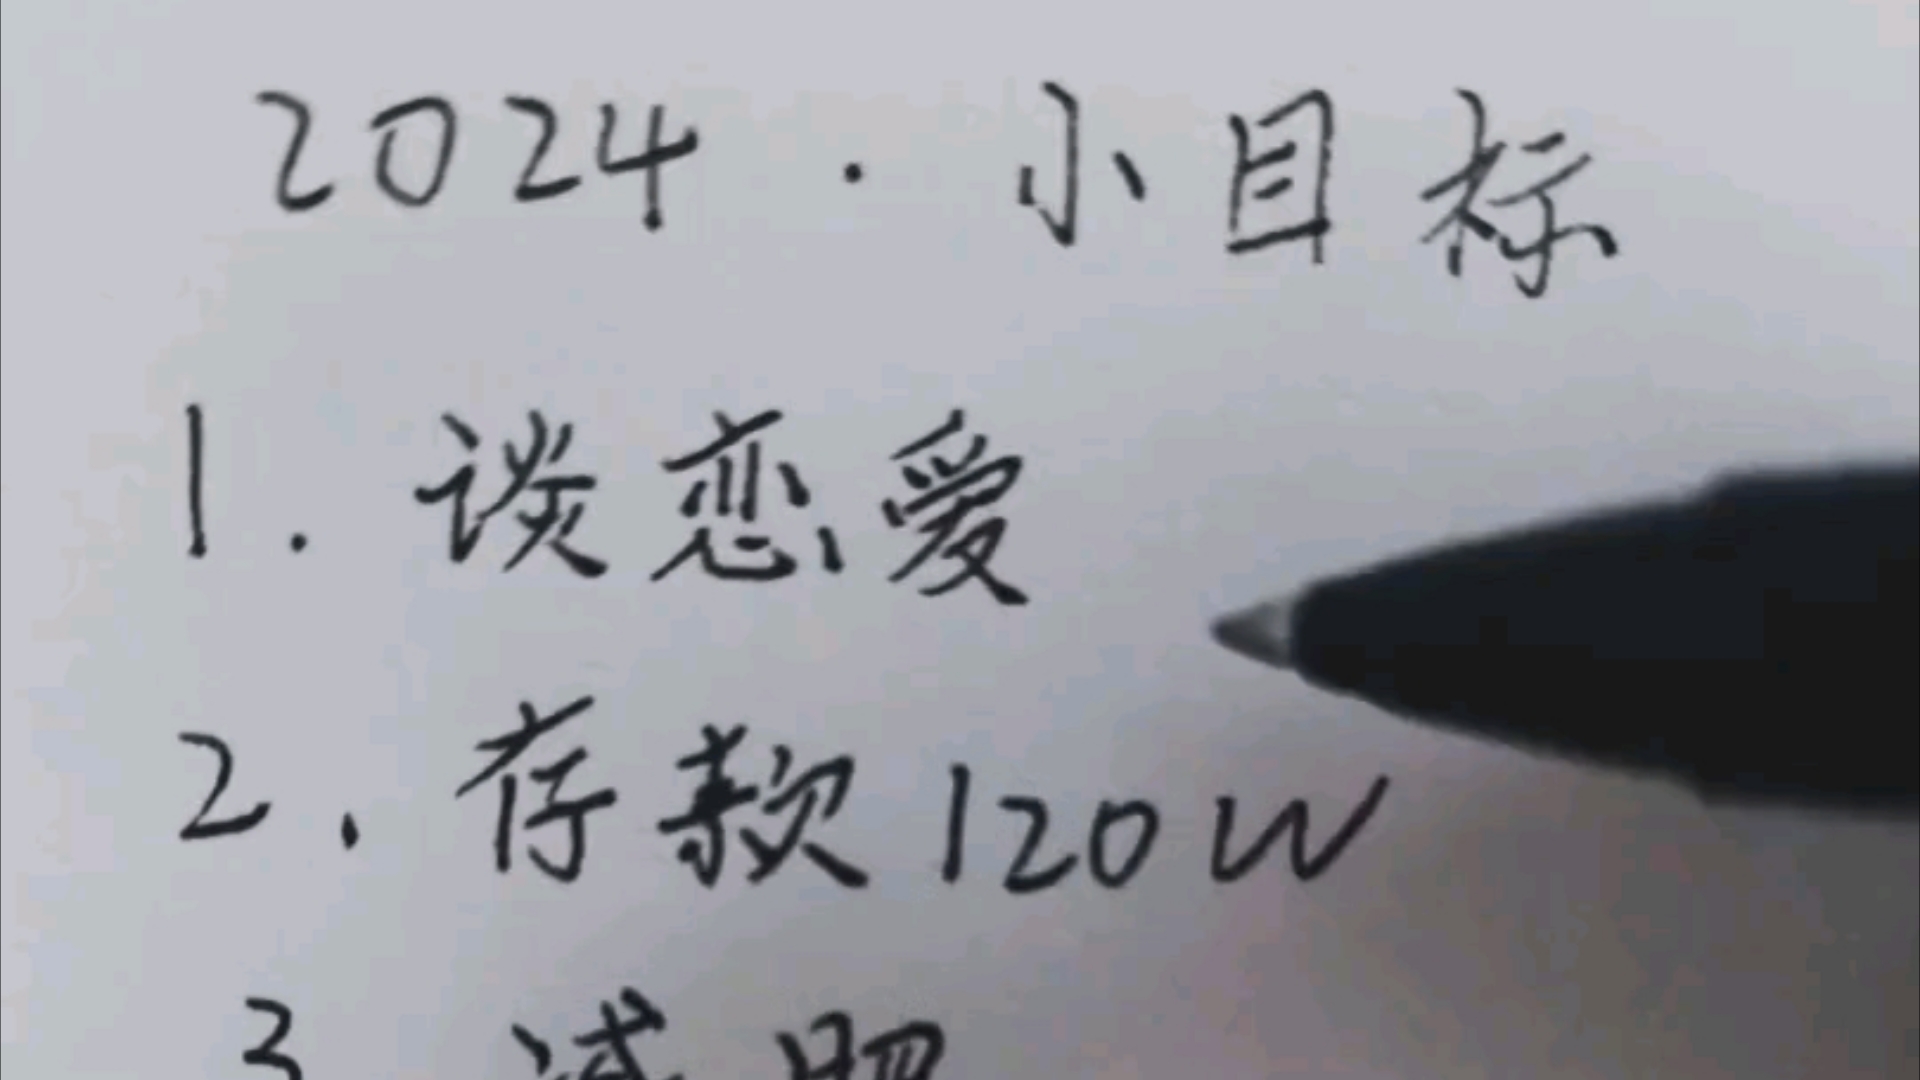 2024 · 小目标
1. 谈恋爱
2. 存款120W
3 减肥